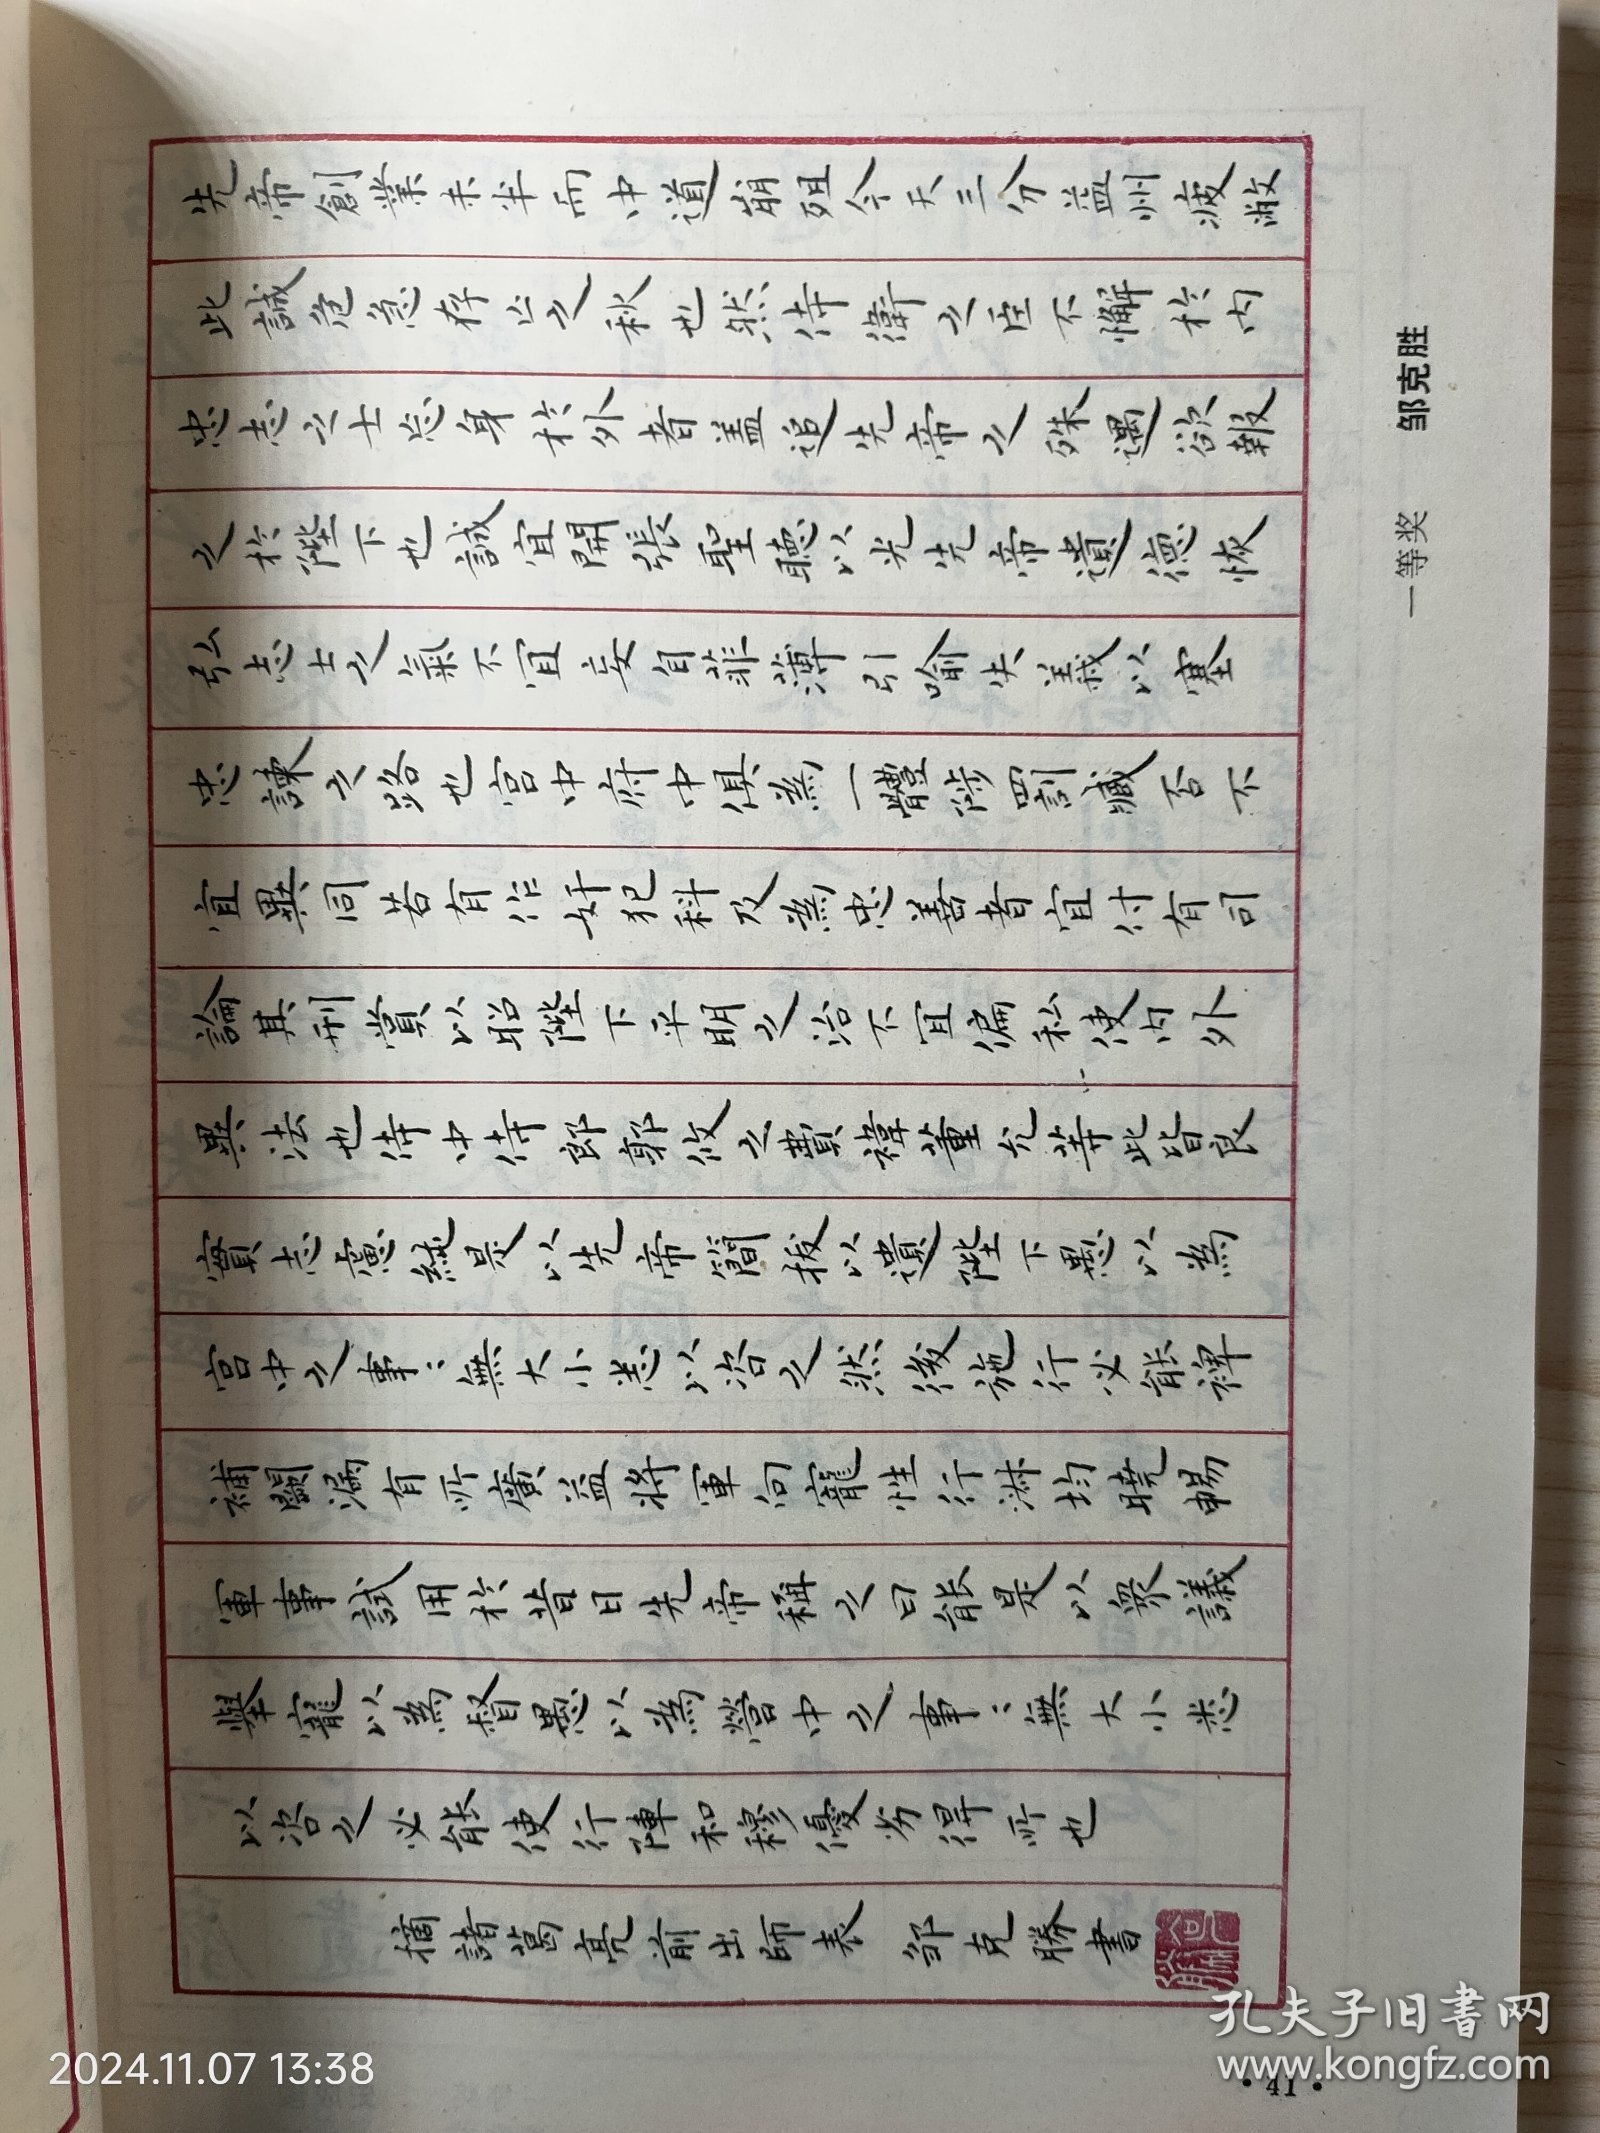 先帝創業未半而中道崩殂今天三分益州疲敝
此誠危急存亡之秋也然侍衛之臣不懈於内
忠志之士忘身於外者蓋追先帝之殊遇欲報
之於陛下也誠宜開張聖聽以光先帝遺德恢
弘志士之氣不宜妄自菲薄引喻失義以塞
忠諫之路也宫中府中俱為一體陟罰臧否不
宜異同若有作奸犯科及為忠善者宜付有司
論其刑賞以昭陛下平明之治不宜偏私使内外
異法也侍中侍郎郭攸之費禕董允等此皆良
實志慮純是以先帝簡拔以遺陛下愚以為
宫中之事〻無大小悉以咨之然後施行必能裨
補闕漏有所廣益將軍向寵性行淑均曉暢
軍事試用於昔日先帝稱之曰能是以衆議
舉寵以為督愚以為營中之事〻無大小悉
以咨之必能使行陣和穆優劣得所也
摘諸葛亮前出師表 邹克勝書
一等奖 邹克胜
· 41 ·
2024.11.07 13:38
孔夫子旧书网
www.kongfz.com